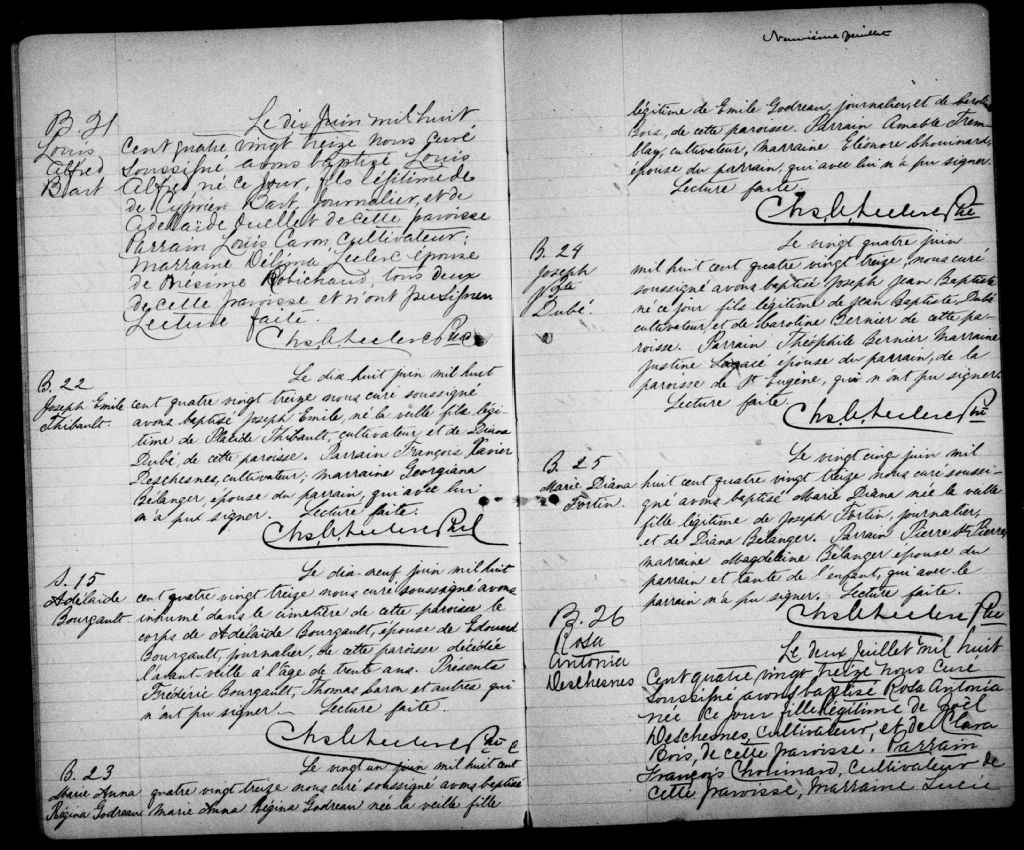 B. 21
Louis
Alfred
Bart
Le dix Juin mil huit
cent quatre vingt treize nous curé
soussigné avons baptisé Louis
Alfred né ce jour, fils légitime de
de Cyprien Bart, journalier, et de
Adelaïde Ouellet de cette paroisse
Parrain Louis Caron, cultivateur;
Marraine Délima Leclerc épouse
de Onésime Robichaud, tous deux
de cette paroisse et n'ont pu signer
Lecture faite.
Chs. G. Leclerc Ptre
B. 22
Joseph Emile
Thibault.
Le dix-huit juin mil huit
cent quatre vingt treize nous curé soussigné
avons baptisé Joseph Emile, né la veille fils légi-
time de Placide Thibault, cultivateur et de Diana
Dubé, de cette paroisse. Parrain François Xavier
Deschesnes, cultivateur; marraine Georgiana
Bélanger épouse du parrain, qui avec lui
n'a pu signer. Lecture faite.
Chs. G. Leclerc Ptre
S. 15
Adélaïde
Bourgault
Le dix-neuf juin mil huit
cent quatre vingt treize nous curé soussigné avons
inhumé dans le cimetière de cette paroisse le
corps de Adélaïde Bourgault, épouse de Edouard
Bourgault, journalier, de cette paroisse décédée
l'avant veille à l'âge de trente ans. Présents
Frédéric Bourgault, Thomas Caron et autres qui
n'ont pu signer. — Lecture faite.
Chs. G. Leclerc Ptre
B. 23
Marie Anna
Régina Godreau
Le vingt un juin mil huit cent
quatre vingt treize nous curé soussigné avons baptisé
Marie Anna Régina Godreau née la veille fille
Neuvième feuillet
légitime de Emile Godreau, journalier, et de Caroline
Bois, de cette paroisse. Parrain Amable Trem-
blay, cultivateur, marraine Eléonore Chouinard,
épouse du parrain, qui avec lui n'a pu signer.
Lecture faite.
Chs. G. Leclerc Ptre
B. 24
Joseph
J. Bte
Dubé.
Le vingt quatre juin
mil huit cent quatre vingt treize, nous curé
soussigné avons baptisé Joseph Jean Baptiste
né ce jour fils légitime de Jean Baptiste Dubé
cultivateur et de Caroline Bernier de cette pa-
roisse. Parrain Théophile Bernier Marraine
Justine Lagacé épouse du parrain, de la
paroisse de St Eugène, qui n'ont pu signer.
Lecture faite.
Chs. G. Leclerc Ptre
B. 25
Marie Diana
Fortin.
Le vingt cinq juin mil
huit cent quatre vingt treize nous curé soussi-
gné avons baptisé Marie Diana née la veille
fille légitime de Joseph Fortin, journalier,
et de Diana Bélanger. Parrain Pierre St Pierre,
marraine Magdeleine Bélanger épouse du
parrain et tante de l'enfant, qui avec le
parrain n'a pu signer. Lecture faite.
Chs. G. Leclerc Ptre
B. 26
Rosa
Antonia
Deschesnes
Le deux Juillet mil huit
cent quatre vingt treize nous curé
soussigné avons baptisé Rosa Antonia
née ce jour fille légitime de Joël
Deschesnes, cultivateur, et de Clara
Bois, de cette paroisse. Parrain
François Chouinard, cultivateur de
cette paroisse, Marraine Lucie